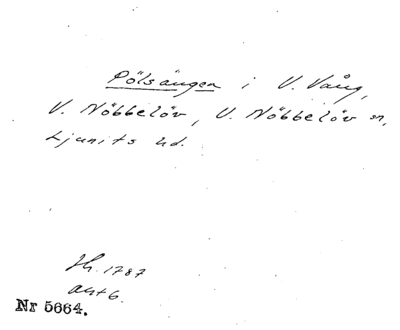 Pölsängen i V. Vång,
V. Nöbbelöv, V. Nöbbelöv sn,
Ljunits hd.
Sk. 1787
akt 6.
Nr 5664.